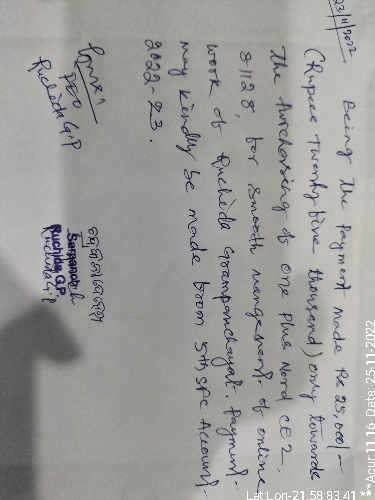 23/11/2022
Being the payment made Rs 25,000/-
(Rupees Twenty five thousand) only towards
the Purchasing of one Plus Nord CE 2,
8/128, for smooth mangement of online
work of Ruchida Grampanchayat. Payment
may kindly be made from 5th SFC Account-
2022-23.
PEO
Ruchida G.P
Sarapanch
Ruchida G.P.
Ruchida G.P
Lat Lon-21 58,83 41 **Acur:11.16 Date: 25-11-2022